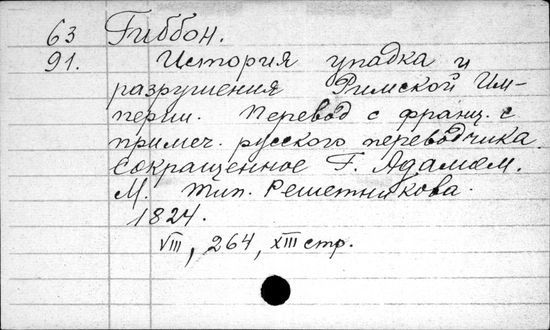 63 Гиббон.
91. История упадка и
разрушения Римской Им-
перии. Перевод с франц. с
примеч. русского переводчика.
Сокращенное Г. Адамом.
М. Тип. Решетникова.
1824.
VIII, 264, XIII стр.